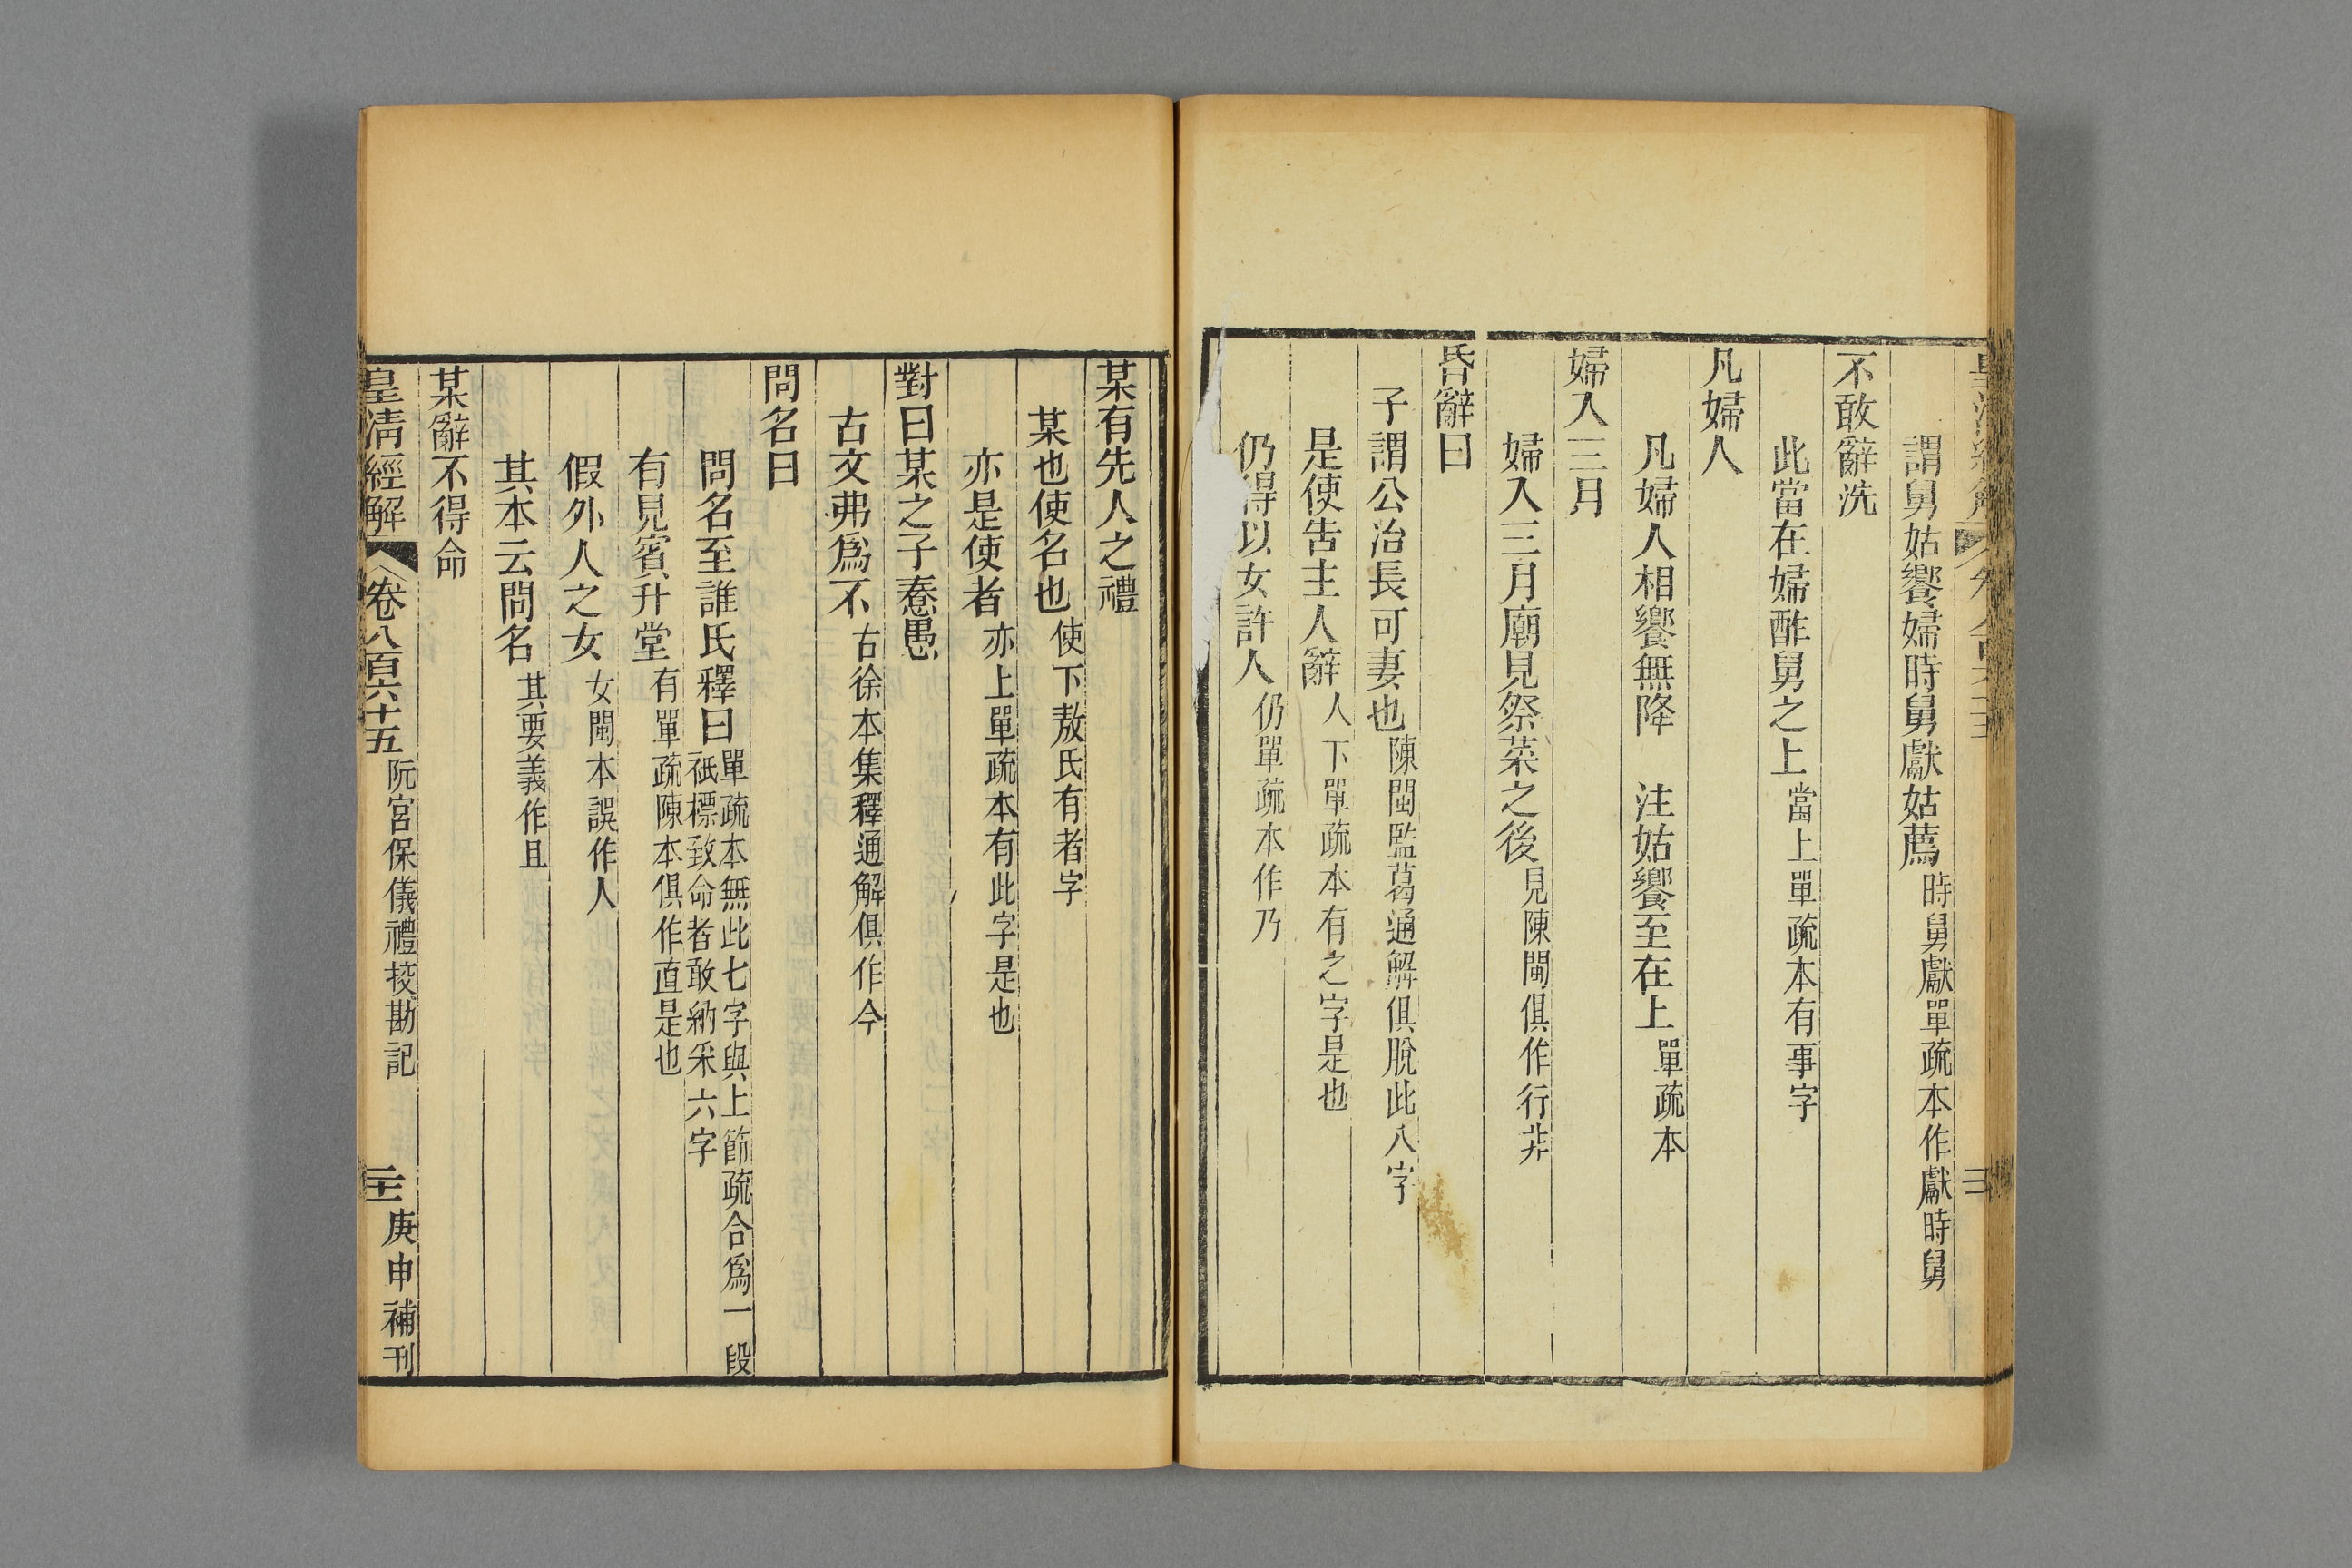 謂舅姑饗婦時舅獻姑薦時舅獻單疏本作獻時舅
不敢辭洗
此當在婦酢舅之上當上單疏本有事字
凡婦人
凡婦人相饗無降　注姑饗至在上單疏本
婦入三月
婦入三月廟見祭菜之後見陳閩俱作行非
昏辭曰
子謂公冶長可妻也陳閩監葛通解俱脫此八字
是使告主人辭人下單疏本有之字是也
仍得以女許人仍單疏本作乃
某有先人之禮
某也使名也使下敖氏有者字
亦是使者亦上單疏本有此字是也
對曰某之子惷愚
古文弗爲不古徐本集釋通解俱作今
問名曰
問名至誰氏釋曰單疏本無此七字與上節疏合爲一段
祇標致命者敢納采六字
有見賓升堂有單疏陳本俱作直是也
假外人之女女閩本誤作人
其本云問名其要義作且
某辭不得命
皇清經解　卷八百六十五　阮宮保儀禮挍勘記　三十　庚申補刊